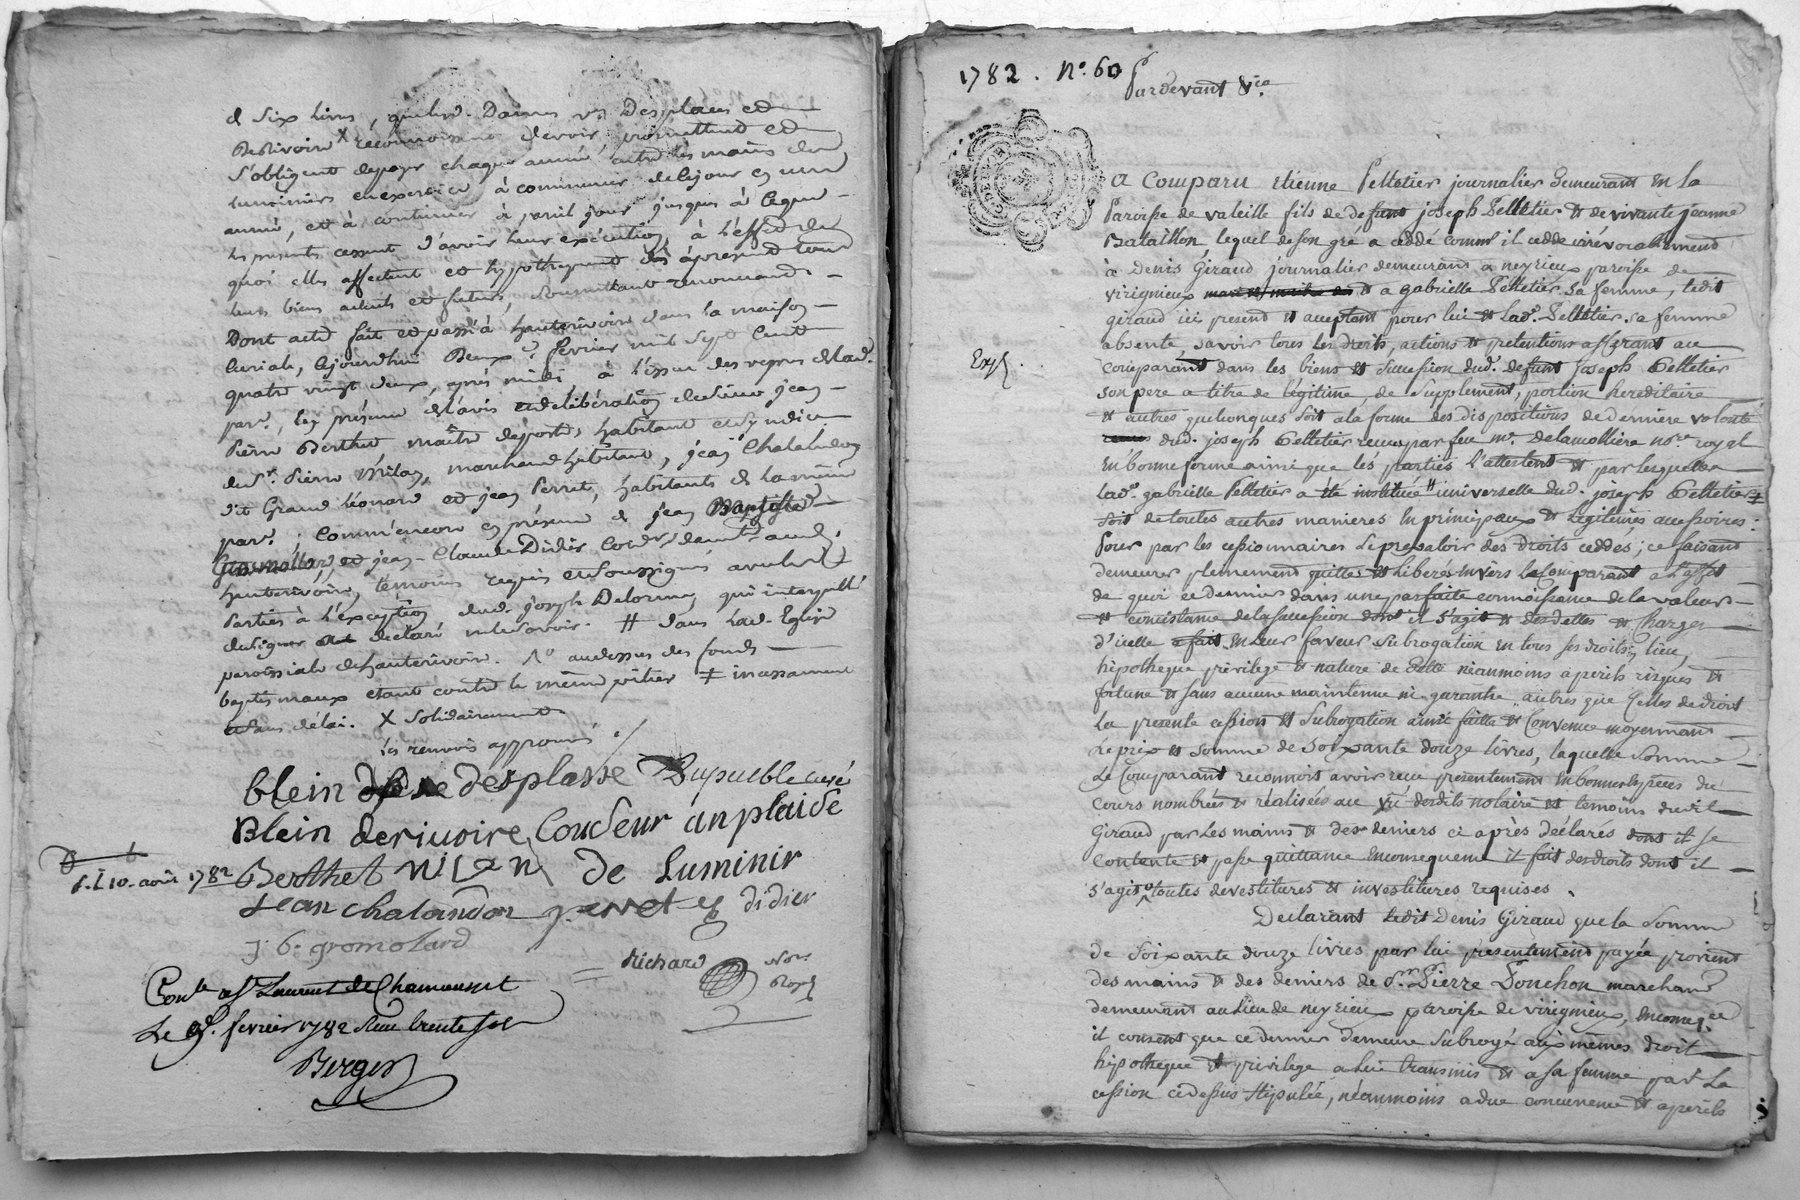 & six livres, quelesd. Dames vs. Desplaces et de
Berivoire X reconnoissent devoir promettent et
s'obligent depayer chaque année, entre les mains des
luminiers enexercice à commencer decejour en une
année, et à continuer à pareil jour jusques à ceque
les presentes cessent d'avoir leur exécution, à l'effet de
quoi elles affectent et hypothequent dès àpresent tous
leurs biens actuels et futurs, soumettant renonceant
Dont acte fait et passé à hauterivoire dans la maison
curiale, cejourdhui Deux fevrier mil sept cent
quatre vingt deux, après midi, à l'issue des vepres de lad.
parr., en présence et del'avis et deliberation de sieur jean
Pierre Berthet maître deposte, habitant et syndic
du sr. Pierre Milan, marchand habitant, jean Chalandon
dit Grand Léonard et jean Perret, habitants de la même
parr., comme encore en présence de jean Baptiste
Gromollard, et jean-Claude Didier demt. aud.
hauterivoire, témoins requis et soussignés avec les
Parties à l'exception dud. joseph Delorme, qui interpellé
designer a déclaré nelesavoir. # dans lad. Eglise
paroissiale de hauterivoire. au dessus des fonds
baptismaux étant contre le même pilier ‡ incessament
et sans délai. X Solidairement
les renvois approuvés
blein desplasse Dupueble curé
Blein derivoire Coudeur anplaide
Berthet Milan de Luminir
10. août 1782
jean chalandon perret didier
j. b. gromolard
Richard Nore. Royal
Conlé à St. Laurent de Chamousset
Le 9. fevrier 1782 Reçu trente sols
Berger
1782. No. 60
Pardevant &ca.
A Comparu étienne Pelletier journalier demeurant en la
Paroisse de valeille fils de defunt joseph Pelletier & de vivante jeanne
Bataillon, lequel de son gré a cédé comme il cedde irrévocablement
à Denis Giraud journalier demeurant a neyrieux paroisse de
virignieux & a gabrielle Pelletier sa femme, ledit
giraud ici present & acceptant pour lui & lade. Pelletier sa femme
absente, savoir tous les droits, actions & pretentions afferant au
Exp.
comparant dans les biens & succession dud. defunt joseph Pelletier
son pere a titre de légitime, de supplement, portion hereditaire
& autres quelconques soit a la forme des dispositions de derniere volonté
dud. joseph Pelletier recues par feu me. delamolliere nore. royal
en bonne forme ainsi que les parties l'attestent & par lesquelles
lade. gabrielle Pelletier a été instituée " universelle dud. joseph Pelletier ‡
soit de toutes autres manieres en principaux & légitimes accessoires:
Pour par les cessionnaires se prevaloir des droits ceddés; ce faisant
demeurer plainement quittes & liberés envers le Comparant a l'effet
de quoi ce dernier dans une parfaite connoissance de la valeur
& consistance de la succession dont il s'agit & des dettes & charges
d'icelle fait en leur faveur subrogation en tous ses droits, lieu,
hipotheque privilege & nature de dette néanmoins a perils risques &
fortune & sans aucune maintenue ni garantie autres que celles de droit
La presente cession & subrogation ainsi faitte & Convenue moyennant
Le prix & somme de soixante douze livres, laquelle somme
Le Comparant reconnoit avoir reçu presentement en bonnes especes du
cours nombrées & réalisées au vû desdits notaire & temoins dudit
Giraud par les mains & des deniers ci après déclarés dont il se
contente & passe quittance en consequence il fait des droits dont il
s'agit toutes devestitures & investitures requises.
Declarant ledit Denis Giraud que la somme
de soixante douze livres par lui presentement payée provient
des mains & des deniers de sr. Pierre Ponchon marchand
demeurant au lieu de neyrieux paroisse de virignieux, en conseqce
il consent que ce dernier demeure subrogé aux mêmes droits
hipotheque & privilege a lui transmis & a sa femme par la
cession cidessus stipulée, néanmoins a due concurrence & a perils